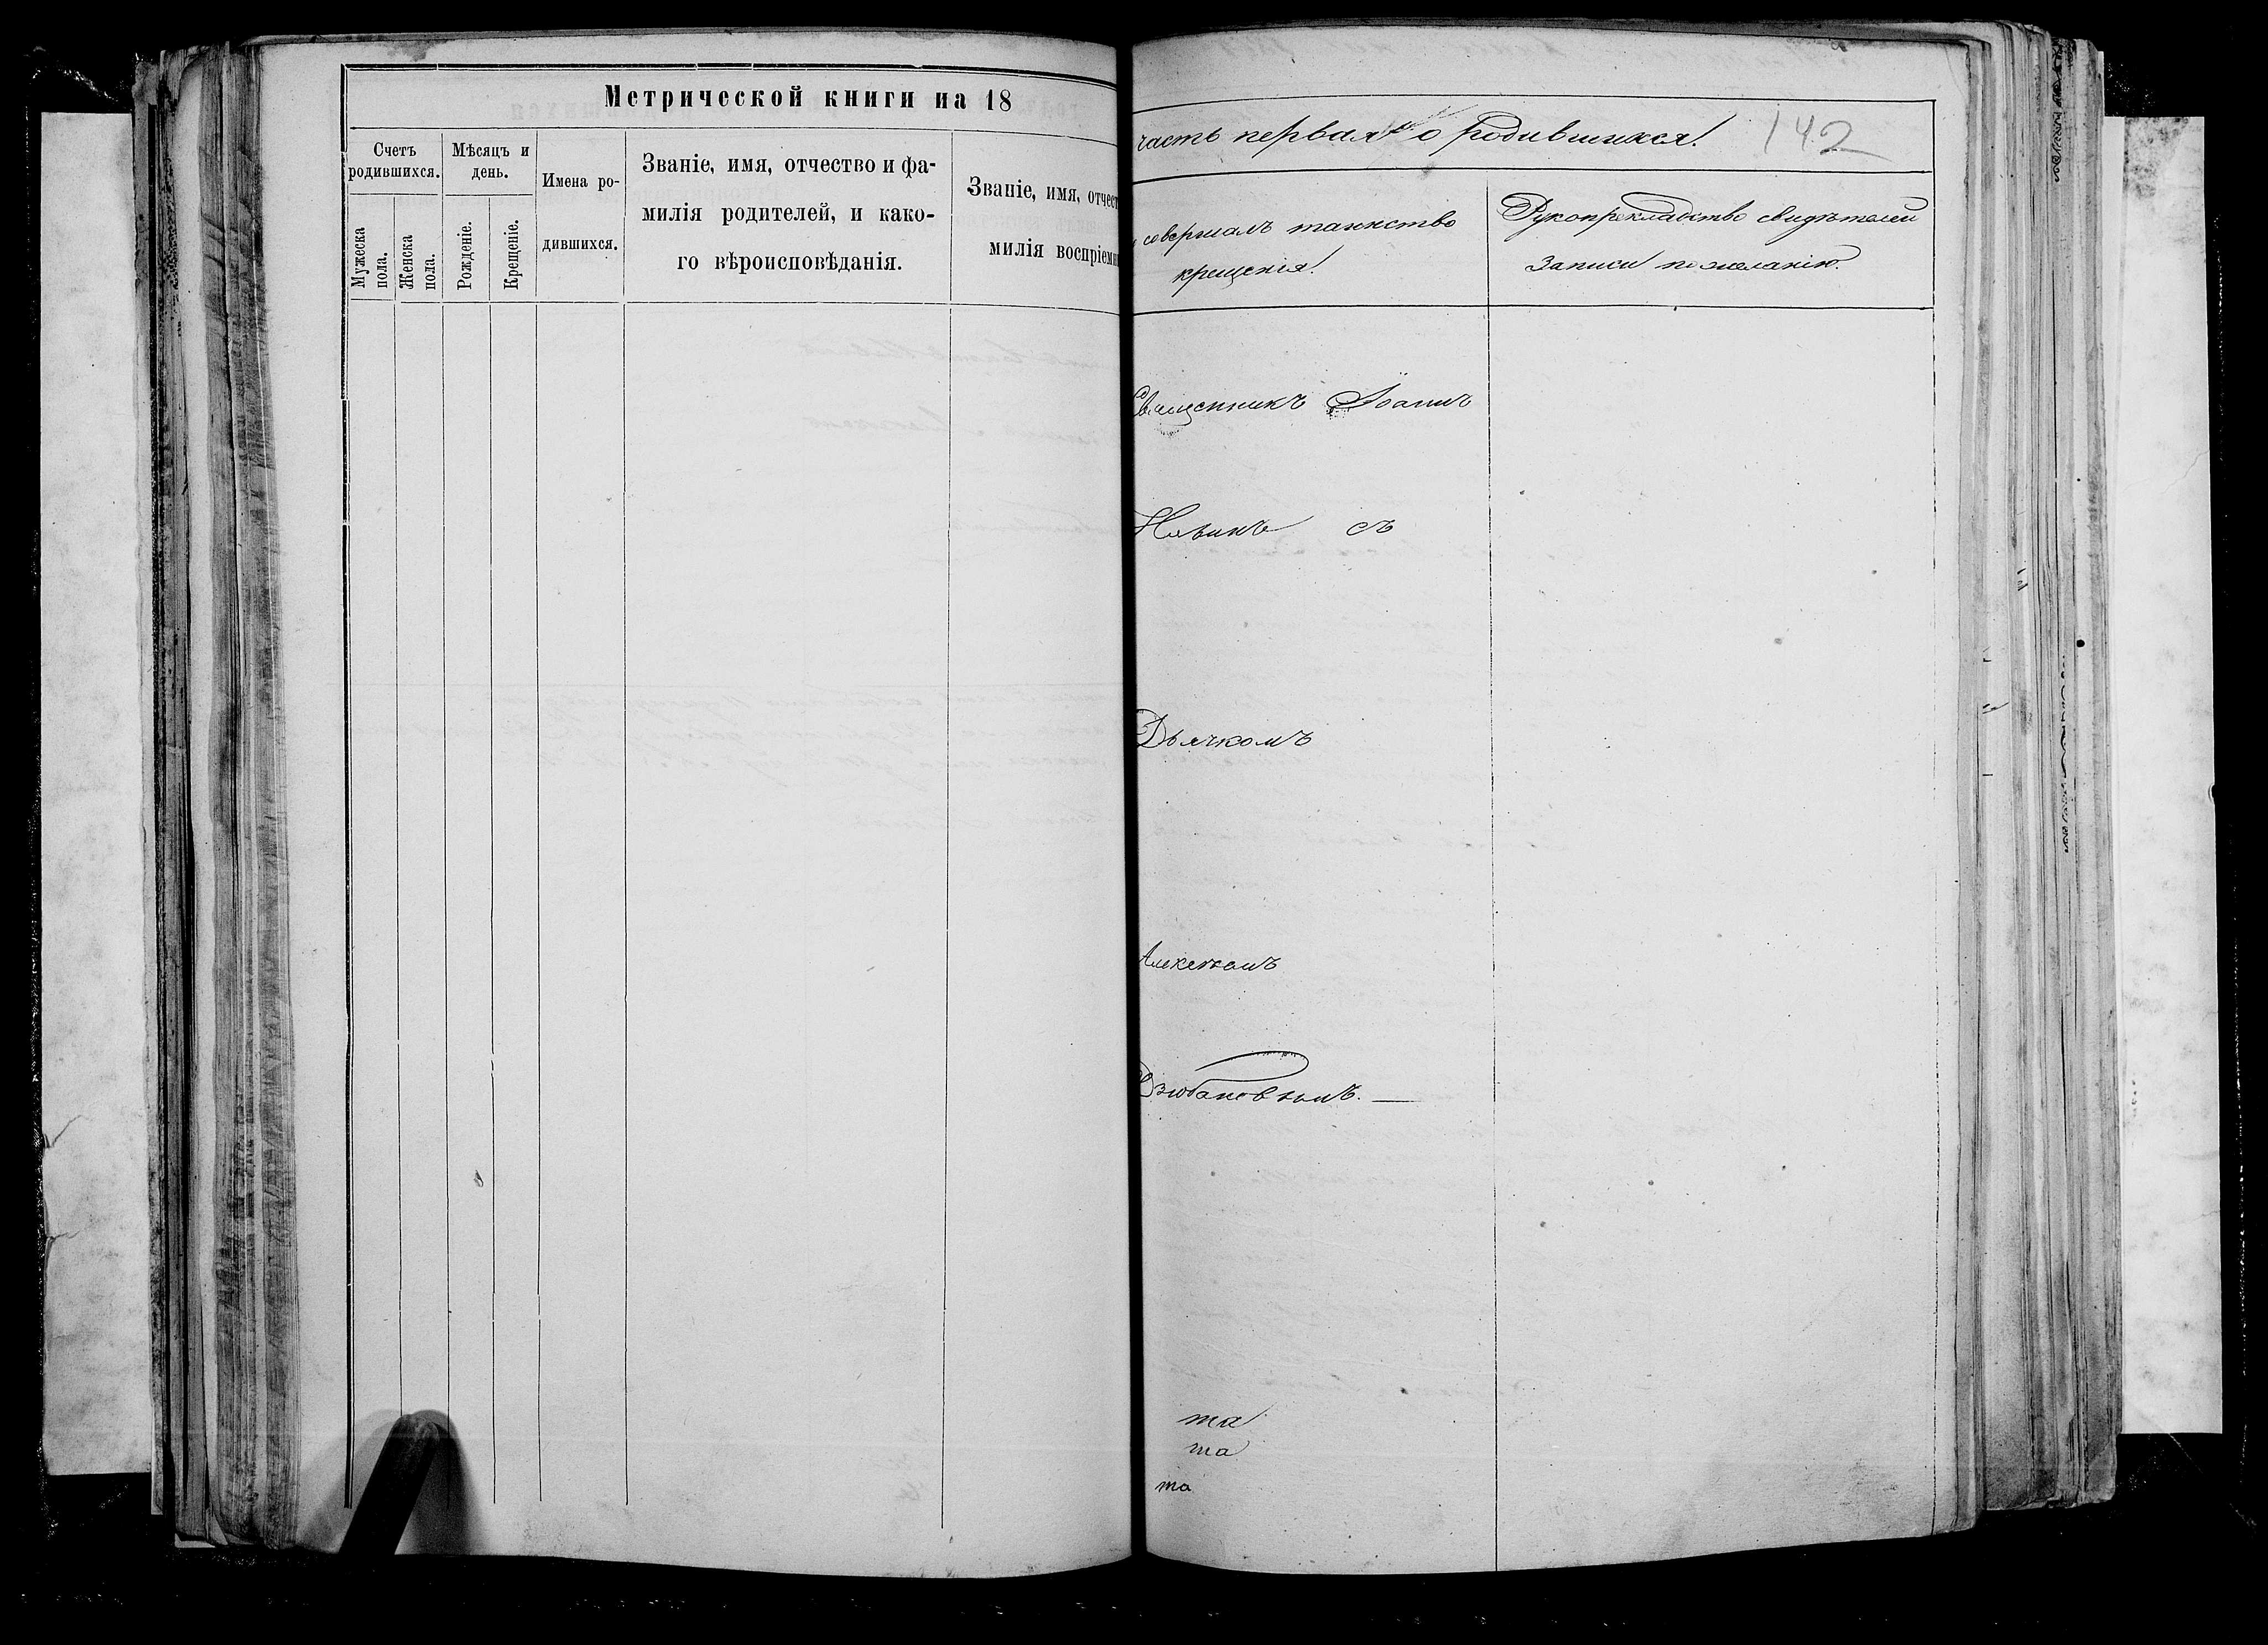 Метрической книги на 18
Счетъ
родившихся.
Мужеска
пола.
Женска
пола.
Мѣсяцъ и
день.
Рожденіе.
Крещеніе.
Имена ро-
дившихся.
Званіе, имя, отчество и фа-
милія родителей, и како-
го вѣроисповѣданія.
Званіе, имя, отчест
милія воспріемн
часть первая о родившихся.
142
совершалъ таинство
крещенія.
Рукоприкладство свидѣтелей
записи по желанію.
Священникъ Іоаннъ
съ
Дьячкомъ
Дзюбановымъ. —
та
та
та